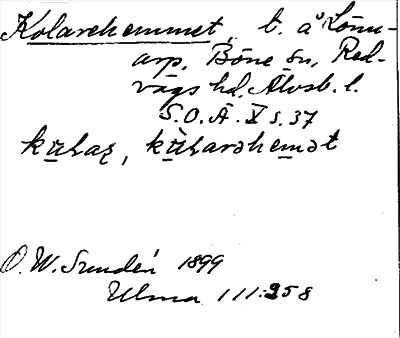 Kolarehemmet, t. å Lönn-
arp, Böne sn, Red-
vägs hd, Älvsb. l.
S.O.Ä. X s. 37
kuLaʀ, kùLarəhemət
O. W. Sundén 1899
Ulma 111:258